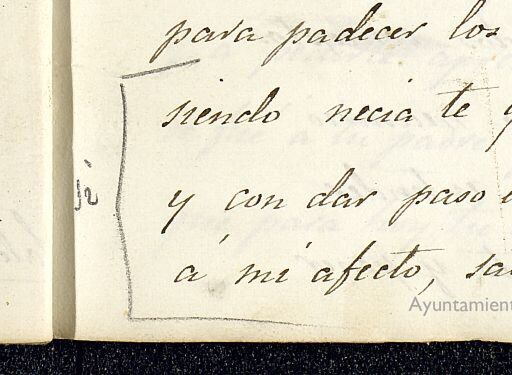 para padecer los
siendo necia te
si
y con dar paso
á mi afecto, sa
Ayuntamient